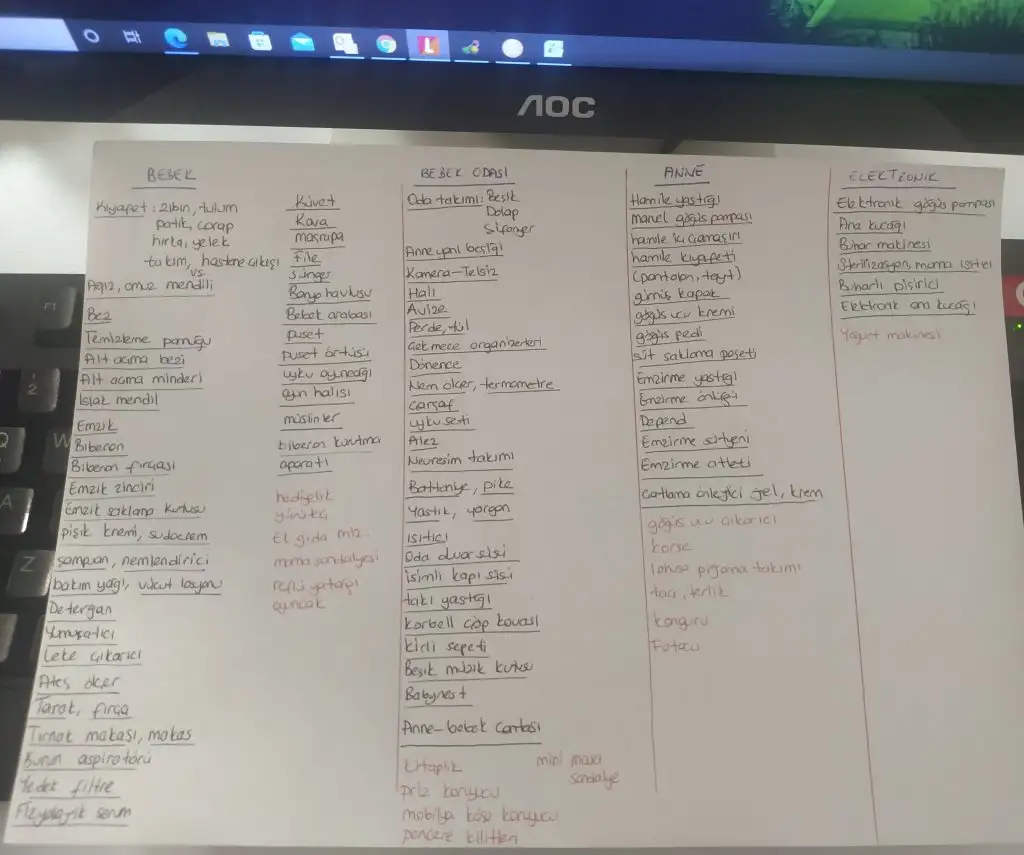 AOC
BEBEK
Kıyafet : zıbın, tulum
patik, çorap
hırka, yelek
takım, hastane çıkışı
vs.
Ağız, omuz mendili
Bez
Temizleme pamuğu
Alt açma bezi
Alt açma minderi
Islak mendil
Emzik
Biberon
Biberon fırçası
Emzik zinciri
Emzik saklama kutusu
pişik kremi, sudocrem
şampuan, nemlendirici
bakım yağı, vücut losyonu
Detergan
Yumuşatıcı
Leke çıkarıcı
Ateş ölçer
Tarak, fırça
Tırnak makası, makas
Burun aspiratörü
Yedek filtre
Fizyolojik serum
Küvet
Kova
maşrapa
File
Sünger
Banyo havlusu
Bebek arabası
puset
puset örtüsü
uyku oyuncağı
oyun halısı
müslinler
biberon kurutma
aparatı
hediyelik
yürüteç
El gıda mlz.
mama sandalyesi
reflü yatağı
oyuncak
BEBEK ODASI
Oda takımı: Beşik
Dolap
Şifonyer
Anne yanı beşiği
Kamera-Telsiz
Halı
Avize
Perde, tül
Çekmece organizerleri
Dönence
Nem ölçer, termometre
Çarşaf
uyku seti
Alez
Nevresim takımı
Battaniye, pike
Yastık, yorgan
ısıtıcı
Oda duvar süsü
isimli kapı süsü
takı yastığı
Korbell çöp kovası
kirli sepeti
Beşik müzik kutusu
Babynest
Anne-bebek çantası
Kitaplık
mini masa
sandalye
priz koruyucu
mobilya köşe koruyucu
pencere kilitleri
ANNE
Hamile yastığı
manuel göğüs pompası
hamile iç çamaşırı
hamile kıyafeti
(pantolon, tayt)
gümüş kapak
göğüs ucu kremi
göğüs pedi
süt saklama poşeti
Emzirme yastığı
Emzirme önlüğü
Depend
Emzirme sütyeni
Emzirme atleti
Çatlama önleyici jel, krem
göğüs ucu çıkarıcı
korse
lohusa pijama takımı
taç, terlik
kanguru
Fotoçu
ELEKTRONİK
Elektronik göğüs pompası
Ana kucağı
Buhar makinesi
Sterilizasyon, mama ısıtıcı
Buharlı pişirici
Elektronik ana kucağı
Yoğurt makinesi